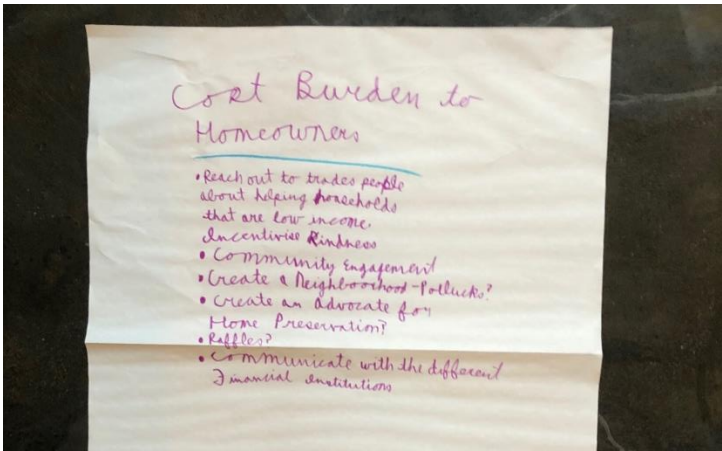 Cost Burden to
Homeowners
• Reach out to trades people
about helping households
that are low income.
Incentivise Kindness
• Community Engagement
• Create a Neighboorhood-Potlucks?
• Create an advocate for
Home Preservation?
• Raffles?
• Communicate with the different
Financial Institutions